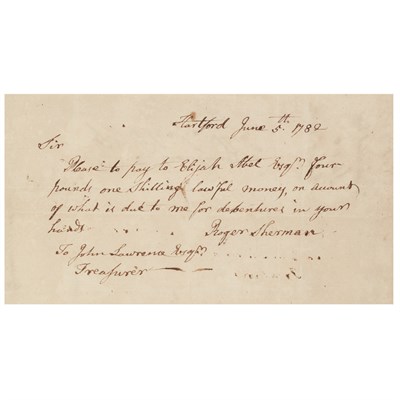 Hartford June 5th. 1782
Sir
Please to pay to Elijah Abel Esqr. four
pounds one Shilling lawful money, on account
of what is due to me for debentures in your
hands Roger Sherman
To John Lawrence Esqr.
Treasurer